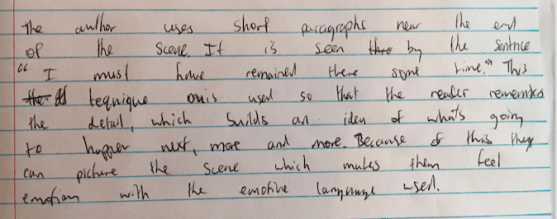 The author uses short paragraphs near the end
of the scene. It is seen by the sentence
"I must have remained there some time." This
tequnique is used so that the reader remembers
the detail, which builds an idea of what's going
to happen next, more and more. Because of this they
can picture the scene which makes them feel
emotion with the emotive language used.